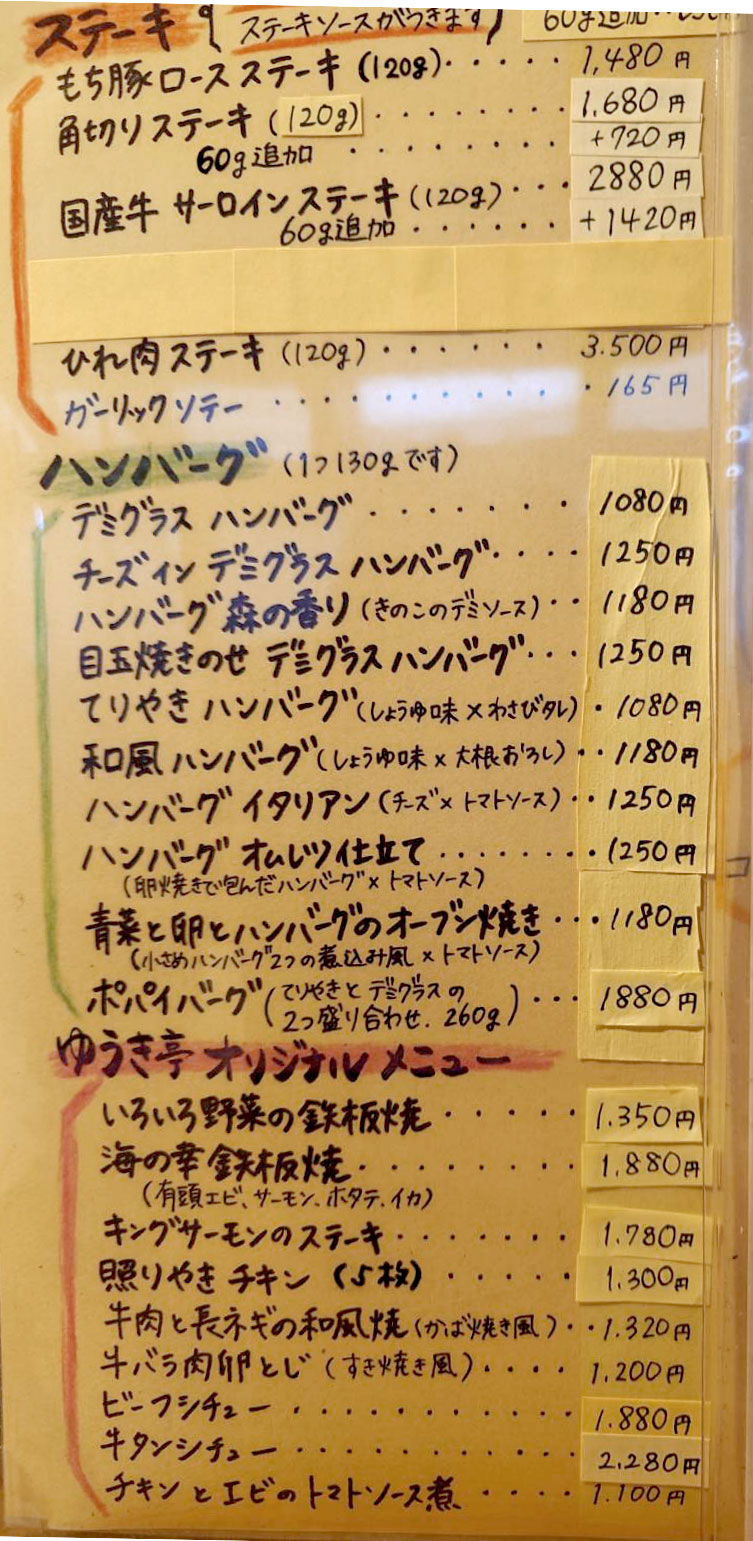 ステーキ (ステーキソースがつきます) 60g追加
もち豚ロースステーキ (120g)・・・・・・1,480円
角切りステーキ (120g)・・・・・・・・1.680円
60g追加・・・・・・・・+720円
国産牛 サーロインステーキ (120g)・・・2880円
60g追加・・・・・・+1420円
ひれ肉ステーキ (120g)・・・・・・・3.500円
ガーリックソテー・・・・・・・・・・・165円
ハンバーグ (1つ130gです)
デミグラス ハンバーグ・・・・・・・1080円
チーズイン デミグラス ハンバーグ・・・・1250円
ハンバーグ 森の香り (きのこのデミソース)・・1180円
目玉焼きのせ デミグラス ハンバーグ・・・1250円
てりやき ハンバーグ (しょうゆ味×わさびタレ)・1080円
和風 ハンバーグ (しょうゆ味×大根おろし)・・1180円
ハンバーグ イタリアン (チーズ×トマトソース)・・1250円
ハンバーグ オムレツ仕立て・・・・・・・・1250円
(卵焼きで包んだハンバーグ×トマトソース)
青菜と卵とハンバーグのオーブン焼き・・・1180円
(小さめハンバーグ2つの煮込み風×トマトソース)
ポパイバーグ (てりやきとデミグラスの
2つ盛り合わせ. 260g)・・・1880円
ゆうき亭 オリジナルメニュー
いろいろ野菜の鉄板焼・・・・・・1.350円
海の幸 鉄板焼・・・・・・・・・1.880円
(有頭エビ、サーモン、ホタテ、イカ)
キングサーモンのステーキ・・・・・・・1.780円
照りやきチキン (5枚)・・・・・1.300円
牛肉と長ネギの和風焼 (かば焼き風)・・1.320円
牛バラ肉卵とじ (すき焼き風)・・・・1.200円
ビーフシチュー・・・・・・・・・・・1.880円
牛タンシチュー・・・・・・・・・・・2.280円
チキンとエビのトマトソース煮・・・・1.100円